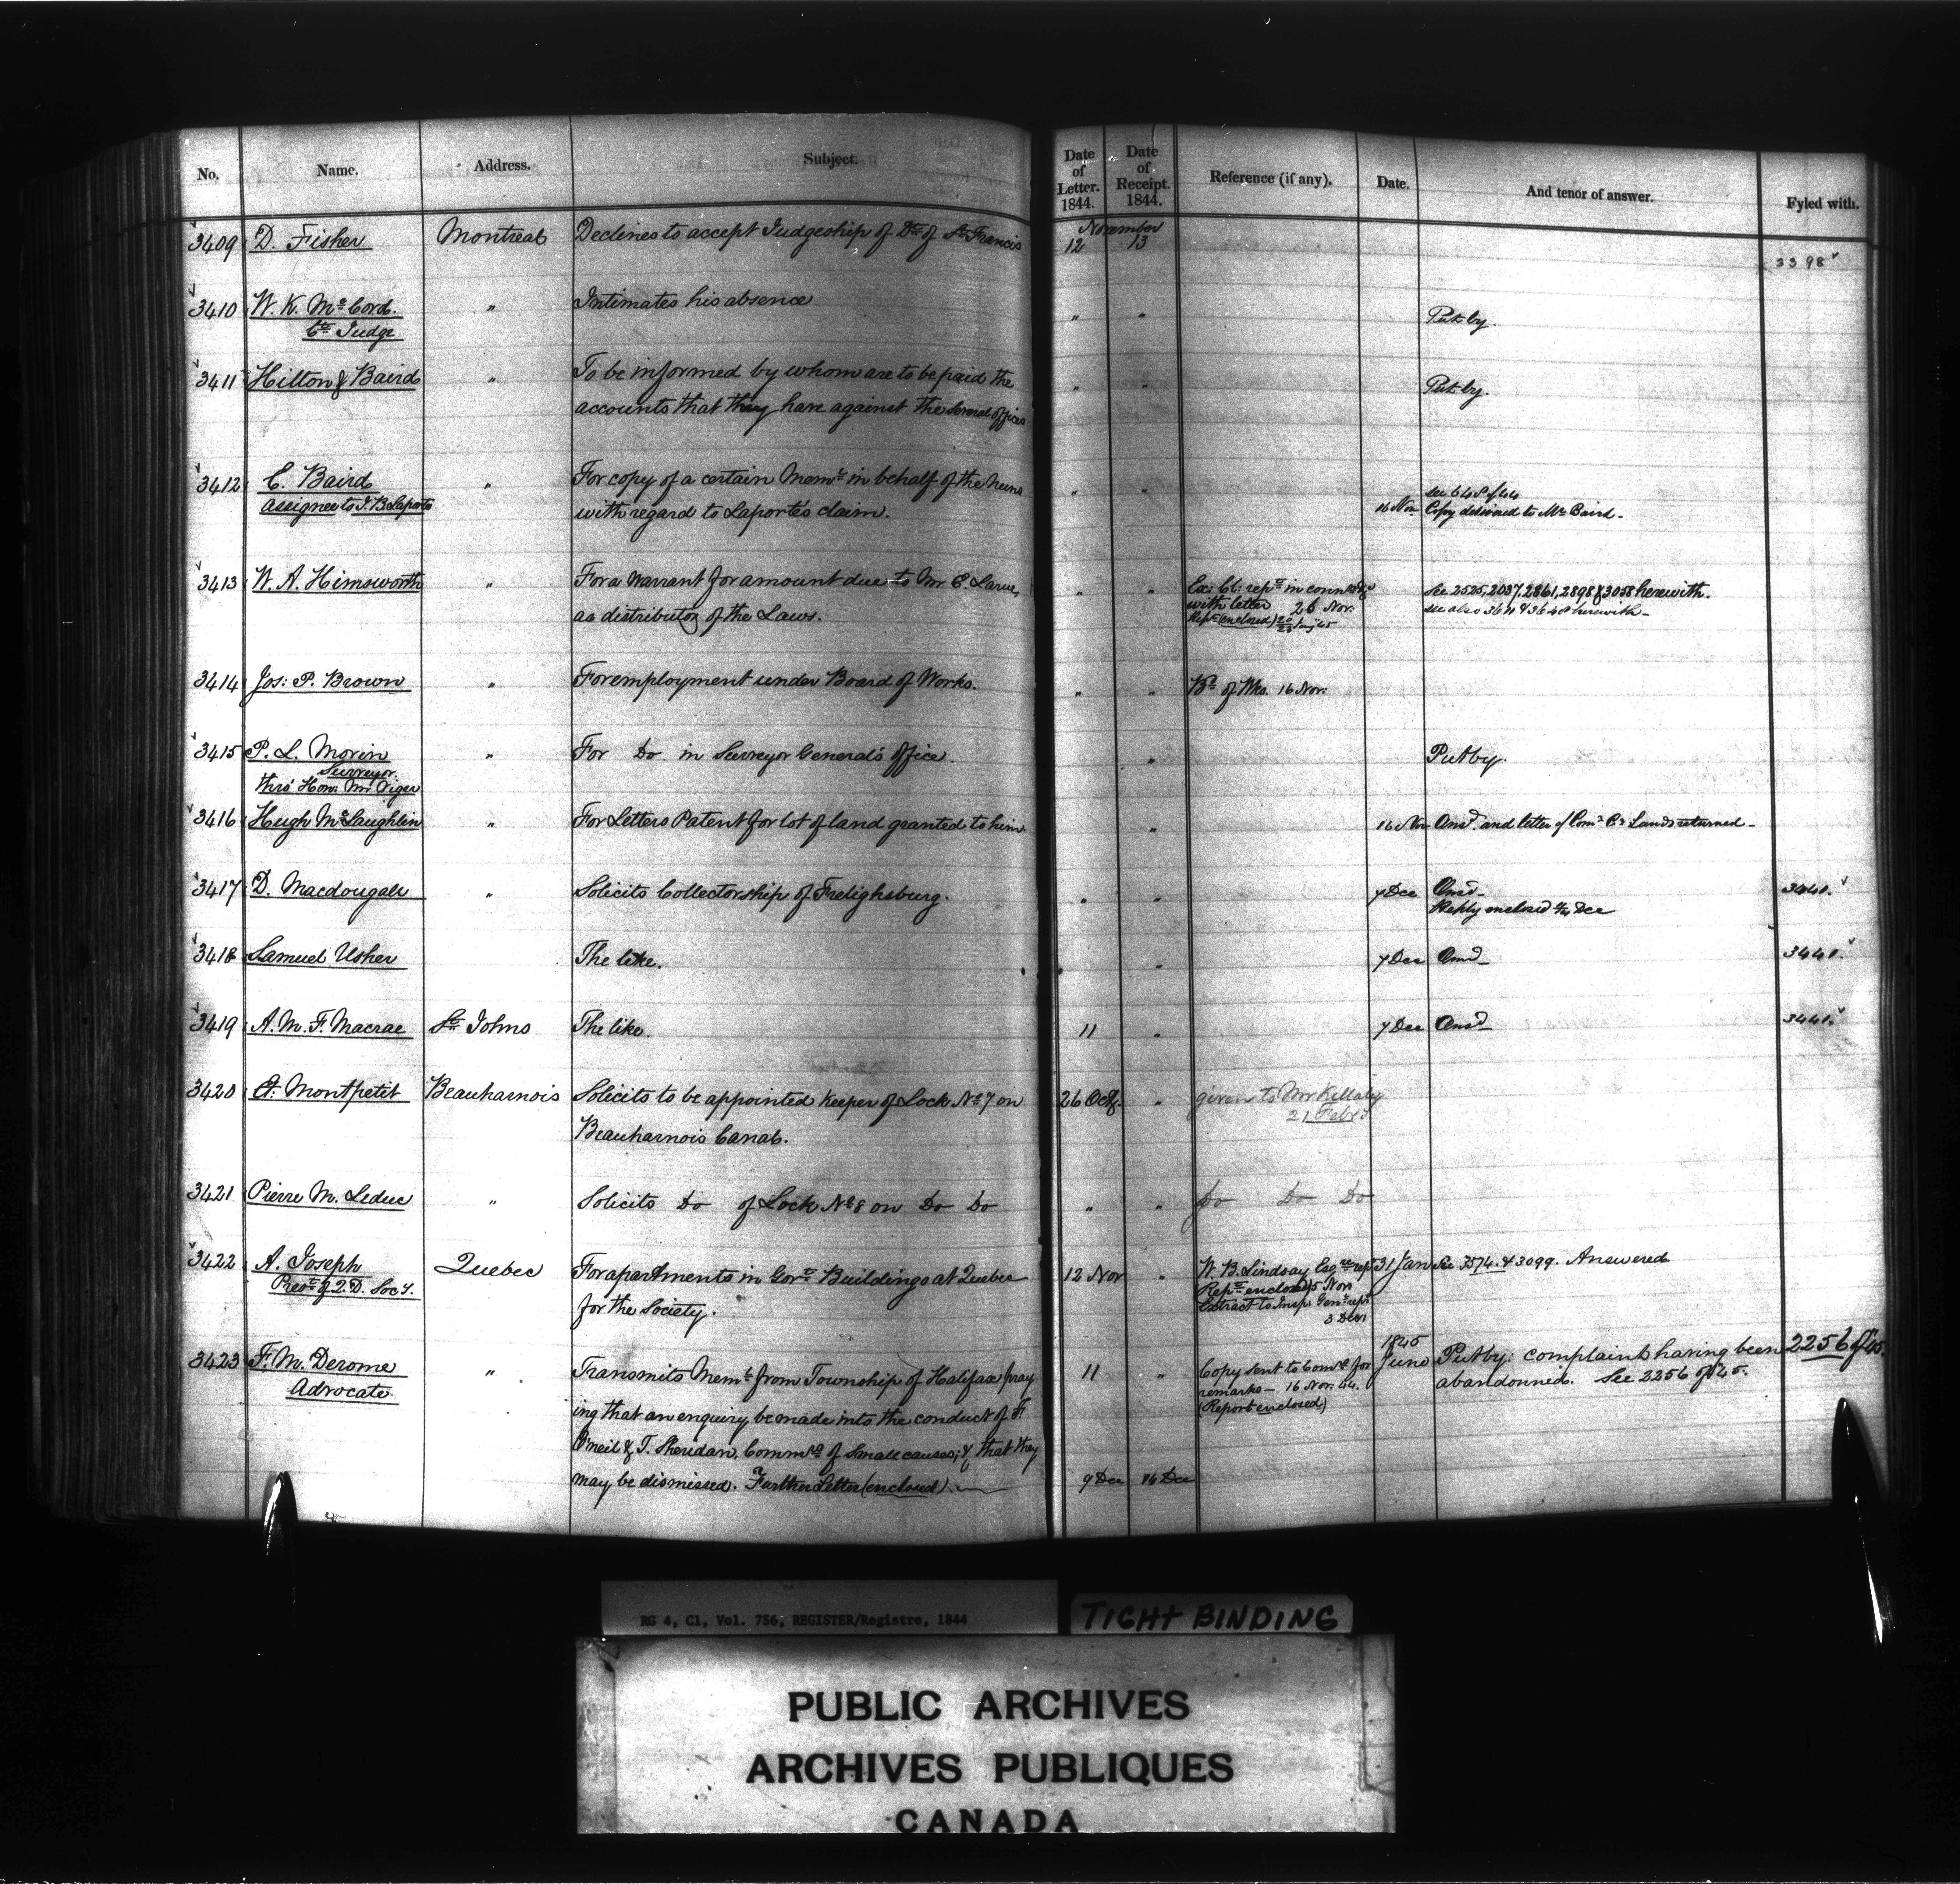 No. Name. Address. Subject. Date of Letter. 1844. Date of Receipt. 1844. Reference (if any). Date. And tenor of answer. Fyled with.
November
3409 D. Fisher Montreal Declines to accept Judgeship of Dt. of St. Francis 12 13 3398
3410 W. K. Mc.Cord. " Intimates his absence " " Put by.
Ct. Judge
3411 Hilton & Baird " To be informed by whom are to be paid the " " Put by.
accounts that they have against the several offices
3412 E. Baird " For copy of a certain Meml. in behalf of the nuns " "
assignee to J. B. Laporte with regard to Laporte's claim. 16 Nov. Copy delivered to Mr. Baird.
3413 W. A. Himsworth " For a warrant for amount due to Mr. E. Larue, " " See 2525, 2037, 2861, 2898 & 3058 herewith.
as distributor of the Laws. with letter 26 Nov: see also 3611 & 3648 herewith
3414 Jos: P. Brown " For employment under Board of Works. " " Bd. of Wks. 16 Nov:
3415 P. L. Morin " For Do in Surveyor General's Office. " Put by.
Surveyor.
thro' Hon: Mr Viger
3416 Hugh McLaughlin " For Letters Patent for lot of land granted to him " 16 Nov Ansd. and letter of Comr. Cn. Lands returned
3417 D. Macdougall " Solicits Collectorship of Frelighsburg. " " 7 Dec Ansd 3441.
Reply enclosed Dec
3418 Samuel Usher The like. " 7 Dec Ansd 3441.
3419 A. M. F. Macrae St. Johns The like. 11 " 7 Dec Ansd 3441.
3420 Et. Montpetit Beauharnois Solicits to be appointed Keeper of Lock No. 7 on 26 Oct. " given to Mr Killaly
Beauharnois Canal. 21 Feby
3421 Pierre M. Leduc " Solicits Do of Lock No. 8 on Do Do " " Do Do Do
3422 A. Joseph Quebec For apartments in Govt. Buildings at Quebec 12 Nov " W. B. Lindsay Esq. rept 31 Jan See 3574 & 3099. Answered.
Prest. of Q. D. Socy. for the Society. Rept. enclosed 15 Nov
Extract to Insp: Genl. rept.
3 Decr
3423 F. M. Derome " Transmits Meml. from Township of Halifax pray 11 " Copy sent to Comrs. for 1845 June Put by: complaint having been 2256 of 45.
Advocate. ing that an enquiry be made into the conduct of F. remarks — 16 Nov. 44. abandonned. See 2256 of 45.
(Report enclosed)
O'neil & T. Sheridan, Commrs. of Small causes; & that they
may be dismissed. Further Letter (enclosed) 9 Dec 16 Dec
RG 4, C1, Vol. 756, REGISTER/Registre, 1844
TIGHT BINDING
PUBLIC ARCHIVES
ARCHIVES PUBLIQUES
CANADA